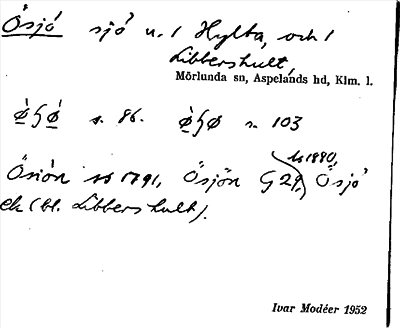 Ösjö sjö u. / Hylta, och /
Libbershult,
Mörlunda sn, Aspelands hd, Klm. l.
s. 86. s. 103
ls 1880,
Ösiön 1791, Ösjön G 29, Ösjö
ek (bl. Libbershult).
Ivar Modéer 1952